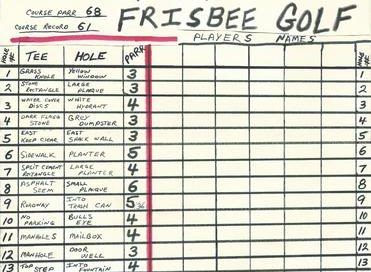 COURSE PARR 68
COURSE RECORD 61
FRISBEE GOLF
PLAYERS NAMES
HOLE # TEE HOLE PARR HOLE #
1 GRASS KNOLE YELLOW WINDOW 3 1
2 STONE RECTANGLE LARGE PLAQUE 3 2
3 WATER COVER DISCS WHITE HYDRANT 4 3
4 DARK FLAGG STONE GREY DUMPSTER 3 4
5 EAST KEEP CLEAR EAST SHACK WALL 3 5
6 SIDEWALK PLANTER 5 6
7 SPLIT CEMENT RECTANGLE LARGE PLANTER 4 7
8 ASPHALT SEEM SMALL PLAQUE 6 8
9 ROADWAY INTO TRASH CAN 5 9
10 NO PARKING BULLS EYE 4 10
11 MANHOLES MAILBOX 4 11
12 MANHOLE DOOR WELL 3 12
13 TOP STEP INTO FOUNTAIN 4 13